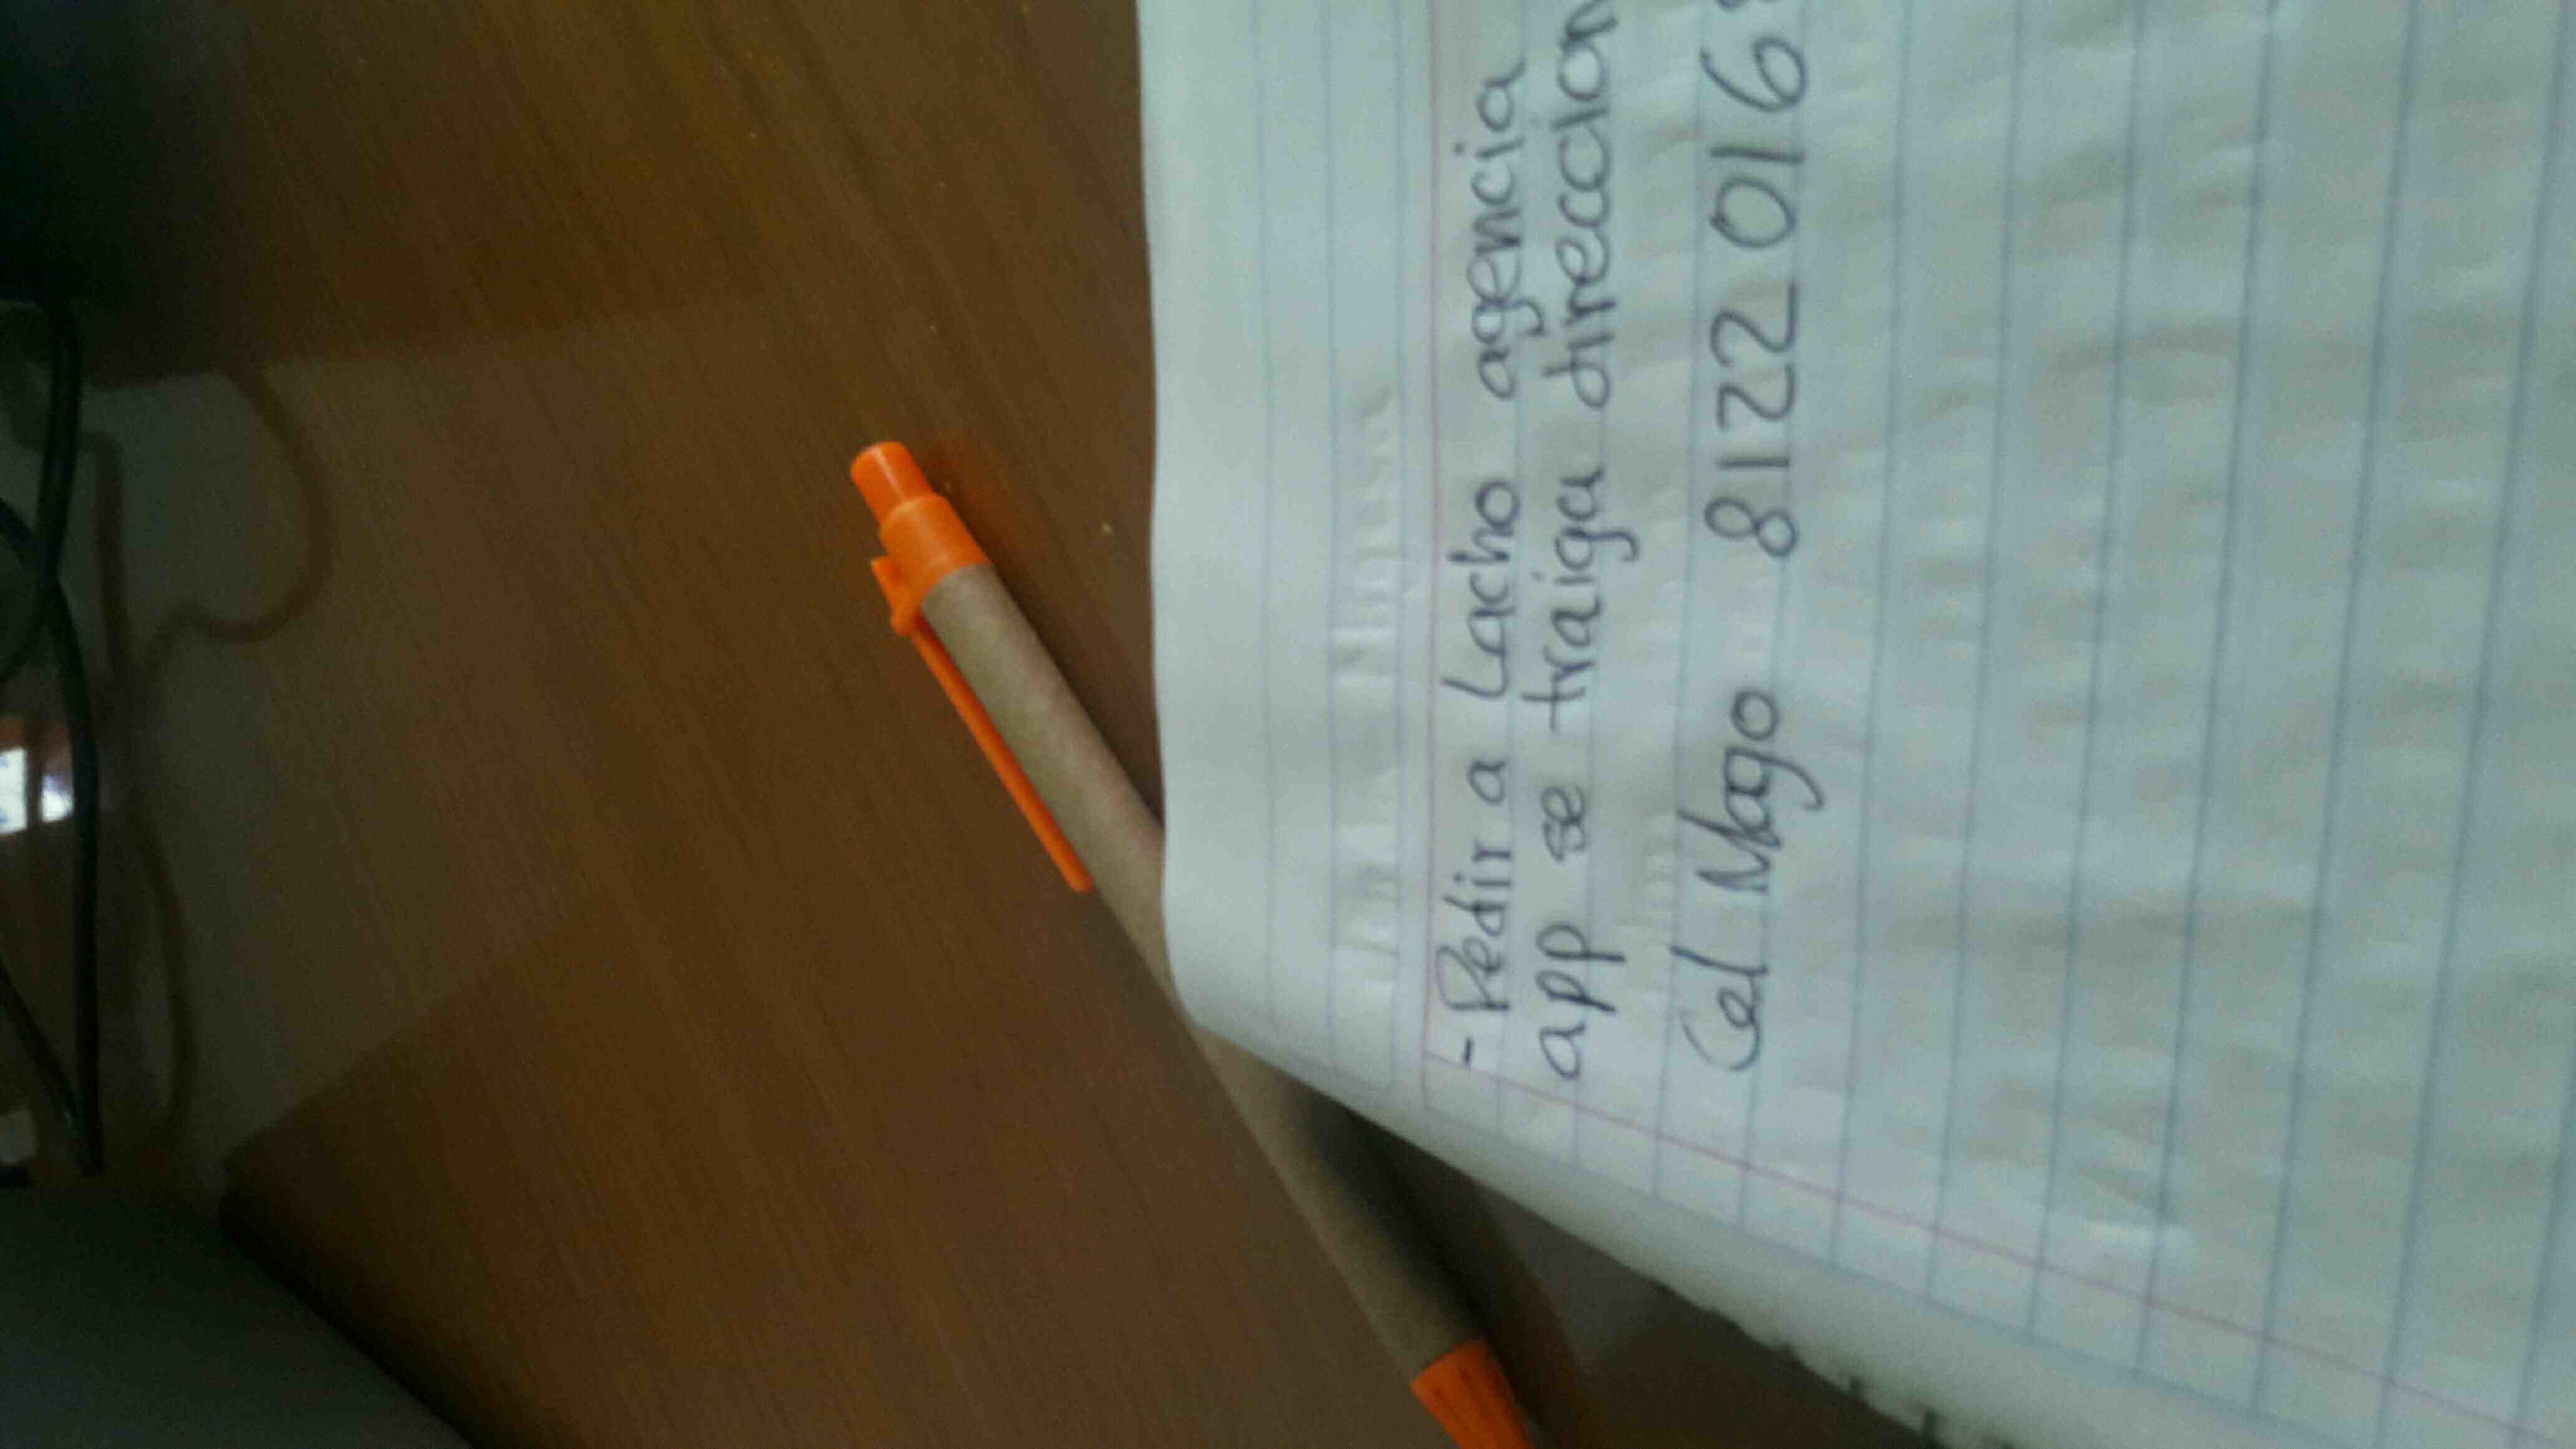 - Pedir a Lacho agencia
app se traiga direccion
Cel Mago 8122 016